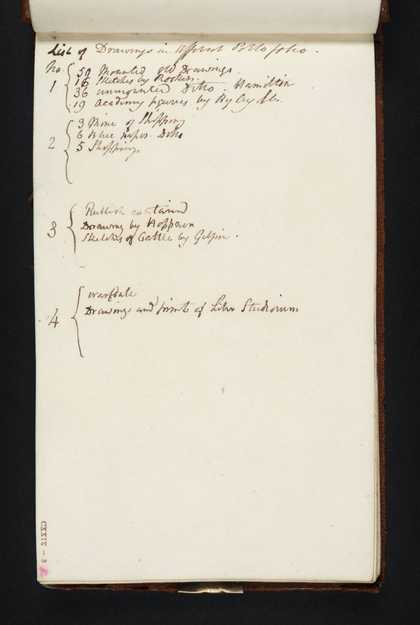 List of Drawings in different Portfolio.
No.
1 50 Mounted old Drawings
16 Sketches by Rooker
36 unmounted Ditto. Hamilton
19 Academy figures by
2 3 Mine of Shipping
6 Blue paper Ditto
5 Shipping
3 Rubbish contained
Drawing by Hoppner
Sketches of Cattle by Gilpin.
4
Drawings and prints of Liber Studiorum
CXXIX - 3